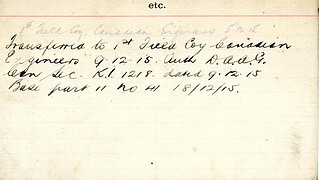 etc.
Field Coy. Canadian Engineers
Transferred to 1st Field Coy Canadian
Engineers 9-12-15. Auth D.A.A.G.
Can Sec. K.1. 1218. dated 9.12.15
Base part 11 No 41 18/12/15.